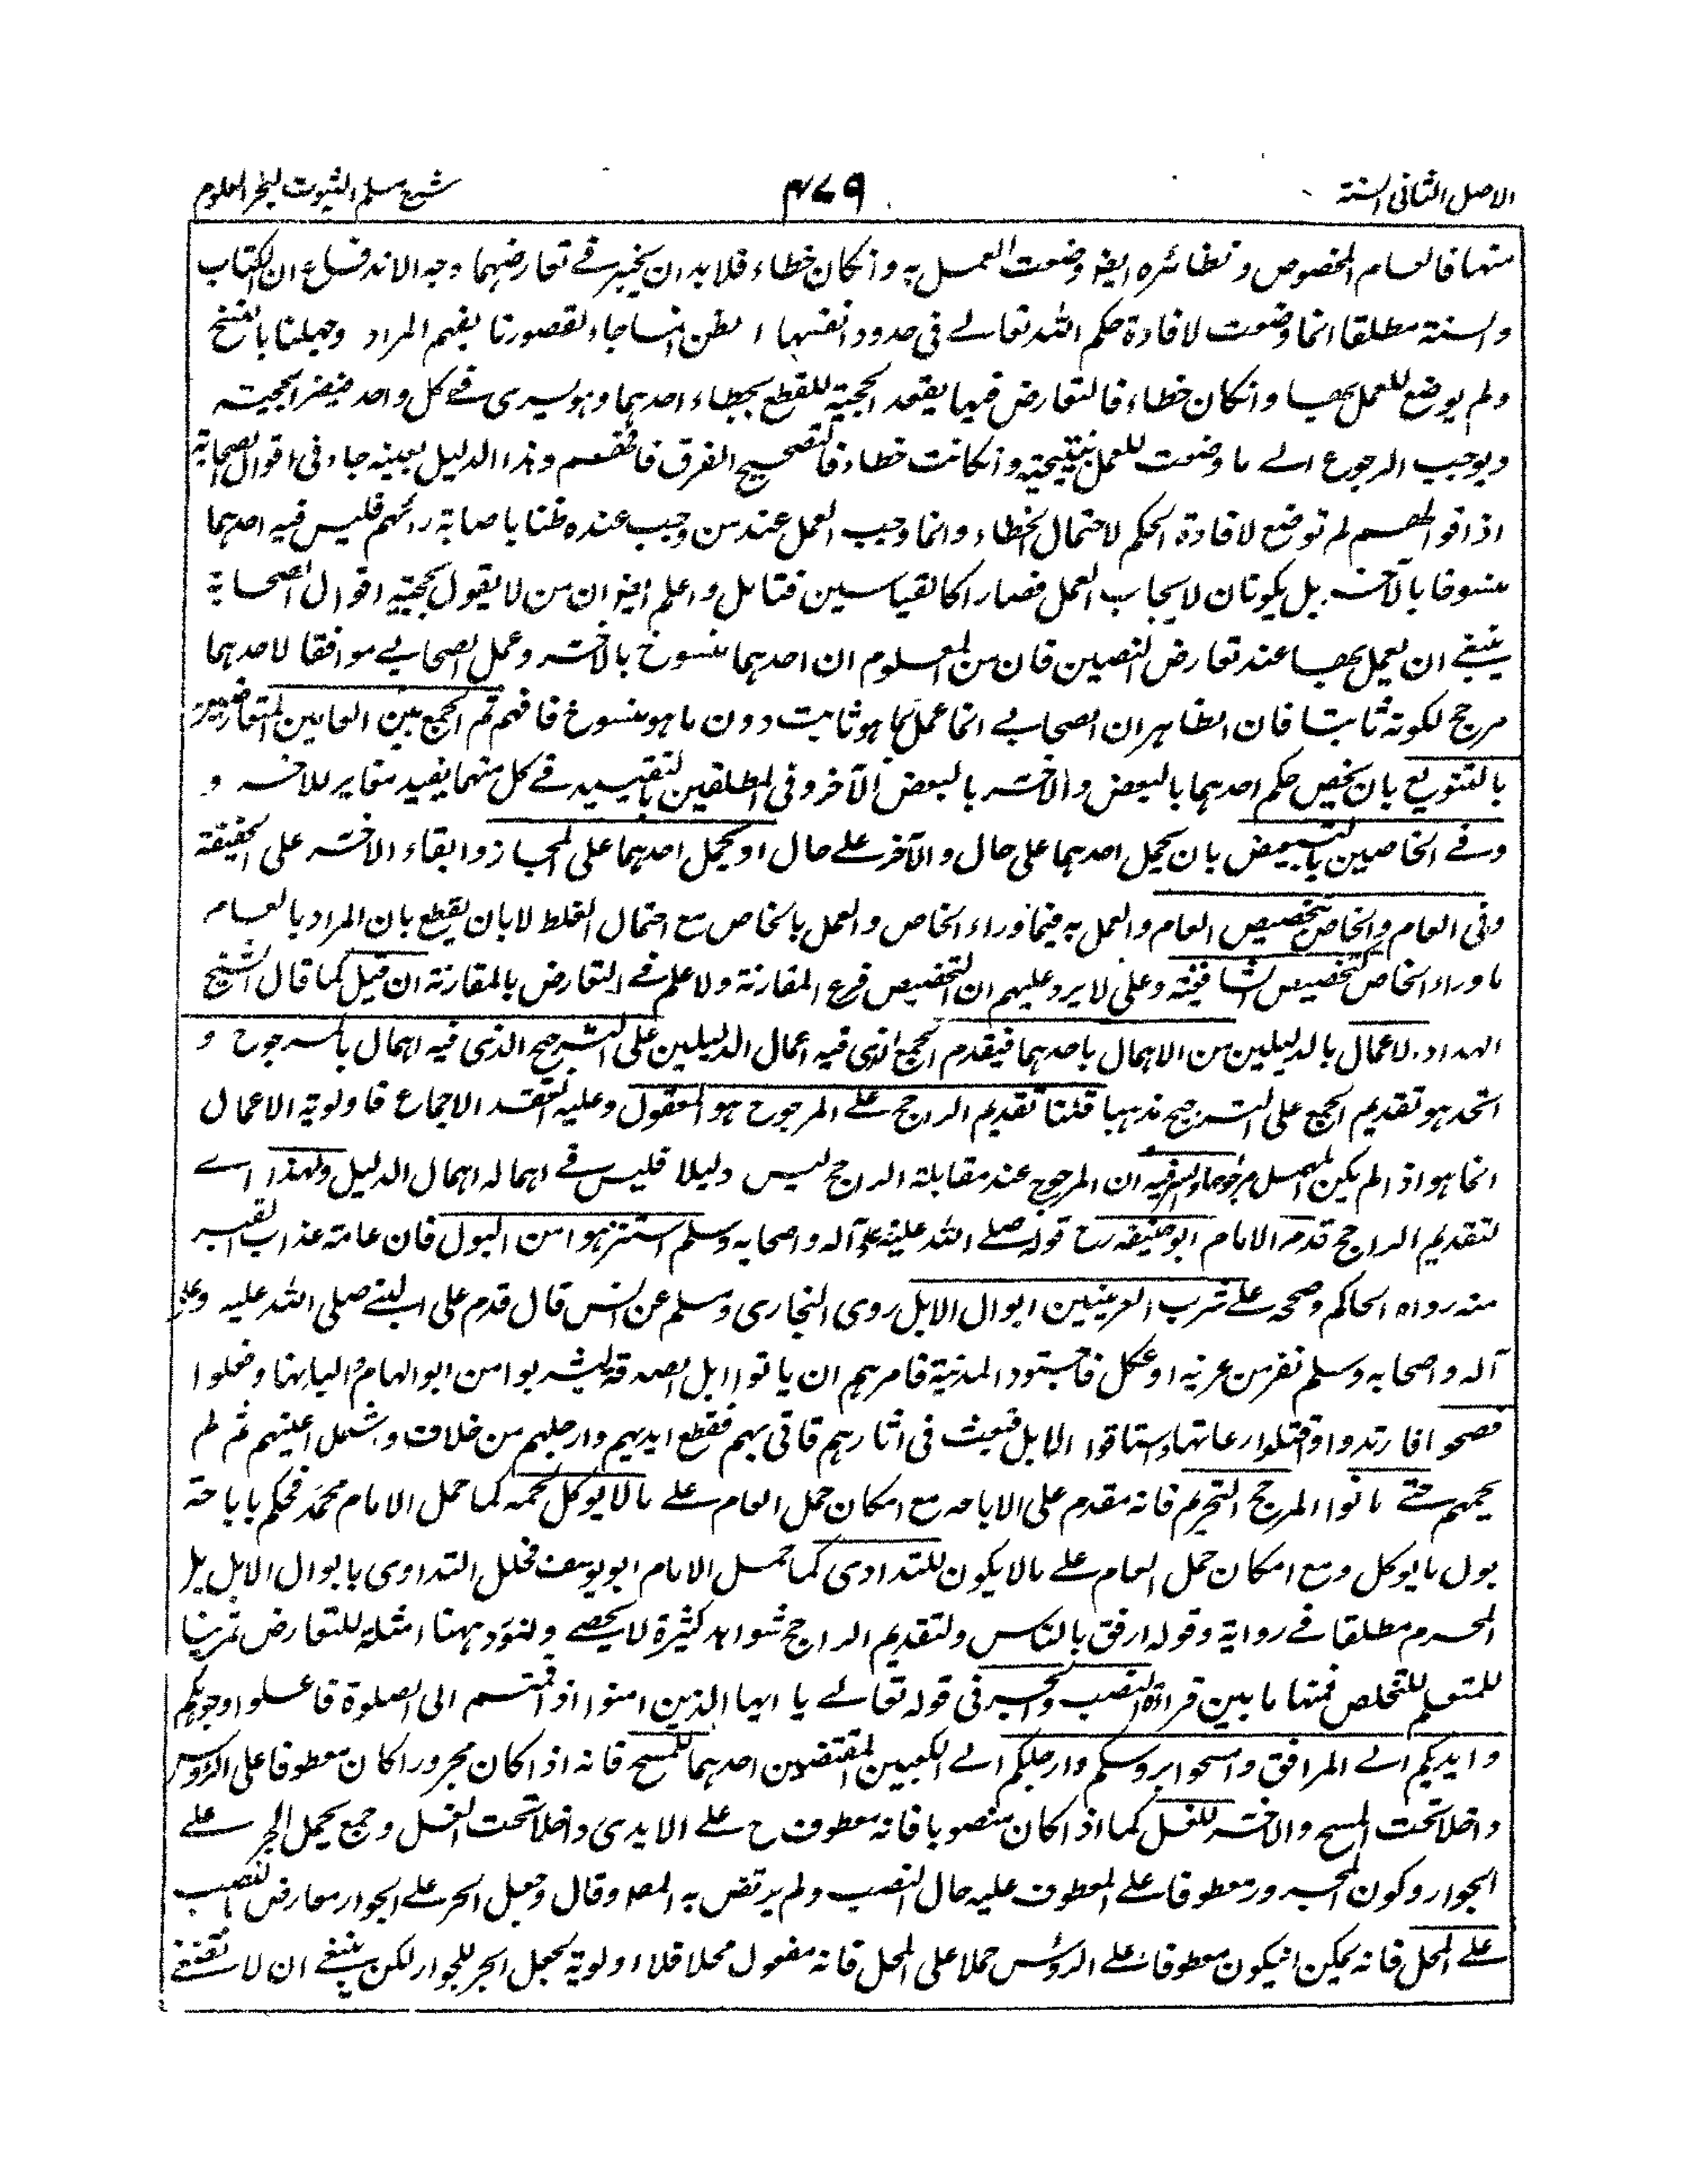 الاصل الثانی السنة
۴۷۹
شرح مسلم الثبوت لبحر العلوم
منها فالعام المخصوص و نظائره ایضا وضعت العمل به و ان کان خطاء فلا بد ان یخیر فے تعارضهما وجه الاندفاع ان الکتاب
والسنة مطلقا انما وضعت لافادة حکم الله تعالے فی حدود انفسها الظن انما جاء لقصورنا بفهم المراد وجهلنا بالنسخ
ولم یوضع للعمل بها وان کان خطاء فالتعارض فیها یفقد الحجیة للقطع بخطاء احدهما وهو یسری فے کل واحد فیضر الحجیته
ویوجب الرجوع الے ما وضعت للعمل بنتیجته وان کانت خطاء فالتصحیح الفرق فافهم وهذا الدلیل بعینه جاء فی اقوال الصحابة
اذ اقوالهم لم توضع لافادة الحکم لاحتمال الخطاء وانما وجب العمل عند من وجب عنده ظنا باصابة رائهم فلیس فیه احدهما
منسوخا بالآخر بل یکونان لایجاب العمل فصارا کالقیاسین فتامل واعلم ایضا ان من لا یقول بحجیة اقوال الصحابة
ینبغے ان یعمل بها عند تعارض النصین فان من المعلوم ان احدهما منسوخ بالاخر وعمل الصحابے موافقا لاحدهما
مرجح لکونه ثابتا فان الظاهر ان الصحابے انما عمل بما هو ثابت دون ما هو منسوخ فافهم ثم الجمع بین العامین المتعارضین
بالتنویع بان یخص حکم احدهما بالبعض والاخر بالبعض الآخر وفی المطلقین بالتقیید فے کل منهما بقید مغایر للاخر و
وفے الخاصین بالتبعیض بان یحمل احدهما علی حال والآخر علے حال او یحمل احدهما علی المجاز وابقاء الاخر علی الحقیقة
وفی العام والخاص بتخصیص العام والعمل به فیما وراء الخاص والعمل بالخاص مع احتمال الغلط لا بان یقطع بان المراد بالعام
ما وراء الخاص کتخصیص الشافعیة وعلی لا یرد علیهم ان التخصیص فرع المقارنة ولا علم فے التعارض بالمقارنة ان قیل کما قال الشیخ
الهداد الاعمال بالدلیلین من الاهمال باحدهما فیقدم الجمع الذی فیه اعمال الدلیلین علی الترجیح الذی فیه اهمال بالمرجوح و
اتخذ هو تقدیم الجمع علی الترجیح مذهبا قلنا تقدیم الراجح علے المرجوح هو المعقول وعلیه انعقد الاجماع فاولویة الاعمال
انما هو اذا لم یکن المهمل مرجوحا والسر فیه ان المرجوح عند مقابلة الراجح لیس دلیلا فلیس فے اهماله اهمال الدلیل ولهذا اے
لتقدیم الراجح قدم الامام ابو حنیفه رح قوله صلے الله علیه وعلی آله واصحابه وسلم استنزهوا من البول فان عامة عذاب القبر
منه رواه الحاکم وصححه علے شرب العرینین ابوال الابل روی البخاری ومسلم عن انس قال قدم علی النبے صلی الله علیه وعلی
آله واصحابه وسلم نفر من عرینه او عکل فاجتووا المدینة فامرهم ان یاتوا ابل الصدقة لیشربوا من ابوالها والبانها وفعلوا
فصحوا فارتدوا وقتلوا رعاتها واستاقوا الابل فبعث فی آثارهم فاتی بهم فقطع ایدیهم وارجلهم من خلاف وسمل اعینهم ثم لم
یحمهم حتے ماتوا المرجح التحریم فانه مقدم علی الاباحه مع امکان حمل العام علے ما لا یوکل لحمه کما حمل الامام محمد فحکم باباحة
بول ما یوکل ومع امکان حمل العام علے ما لا یکون للتداوی کما حمل الامام ابو یوسف فحلل التداوی بابوال الابل بل
المحرم مطلقا فے روایة وقوله ارفق بالناس ولتقدیم الراجح شواهد کثیرة لا یحصے ولنورد ههنا امثلة للتعارض تمرینا
للمتعلم للتخلص فمنها ما بین قراءة النصب والجر فی قوله تعالے یا ایها الذین امنوا اذا قمتم الی الصلوة فاغسلوا وجوهکم
وایدیکم الے المرافق وامسحوا بروسکم وارجلکم الے الکعبین المقتضیین احدهما للمسح فانه اذا کان مجرورا کان معطوفا علی الرؤس
داخلا تحت المسح والاخر للغسل کما اذا کان منصوبا فانه معطوف ح علے الایدی داخلا تحت الغسل وجمع بحمل الجر علے
الجوار وکون المجرور معطوفا علے المعطوف علیه حال النصب ولم یرتض به المصـ وقال وحمل الجر علے الجوار معارض بالنصب
علے المحل فانه یمکن ان یکون معطوفا علے الرؤس حملا علی المحل فانه مفعول محلا فلا اولویة لحمل الجر للجوار لکن ینبغے ان لا